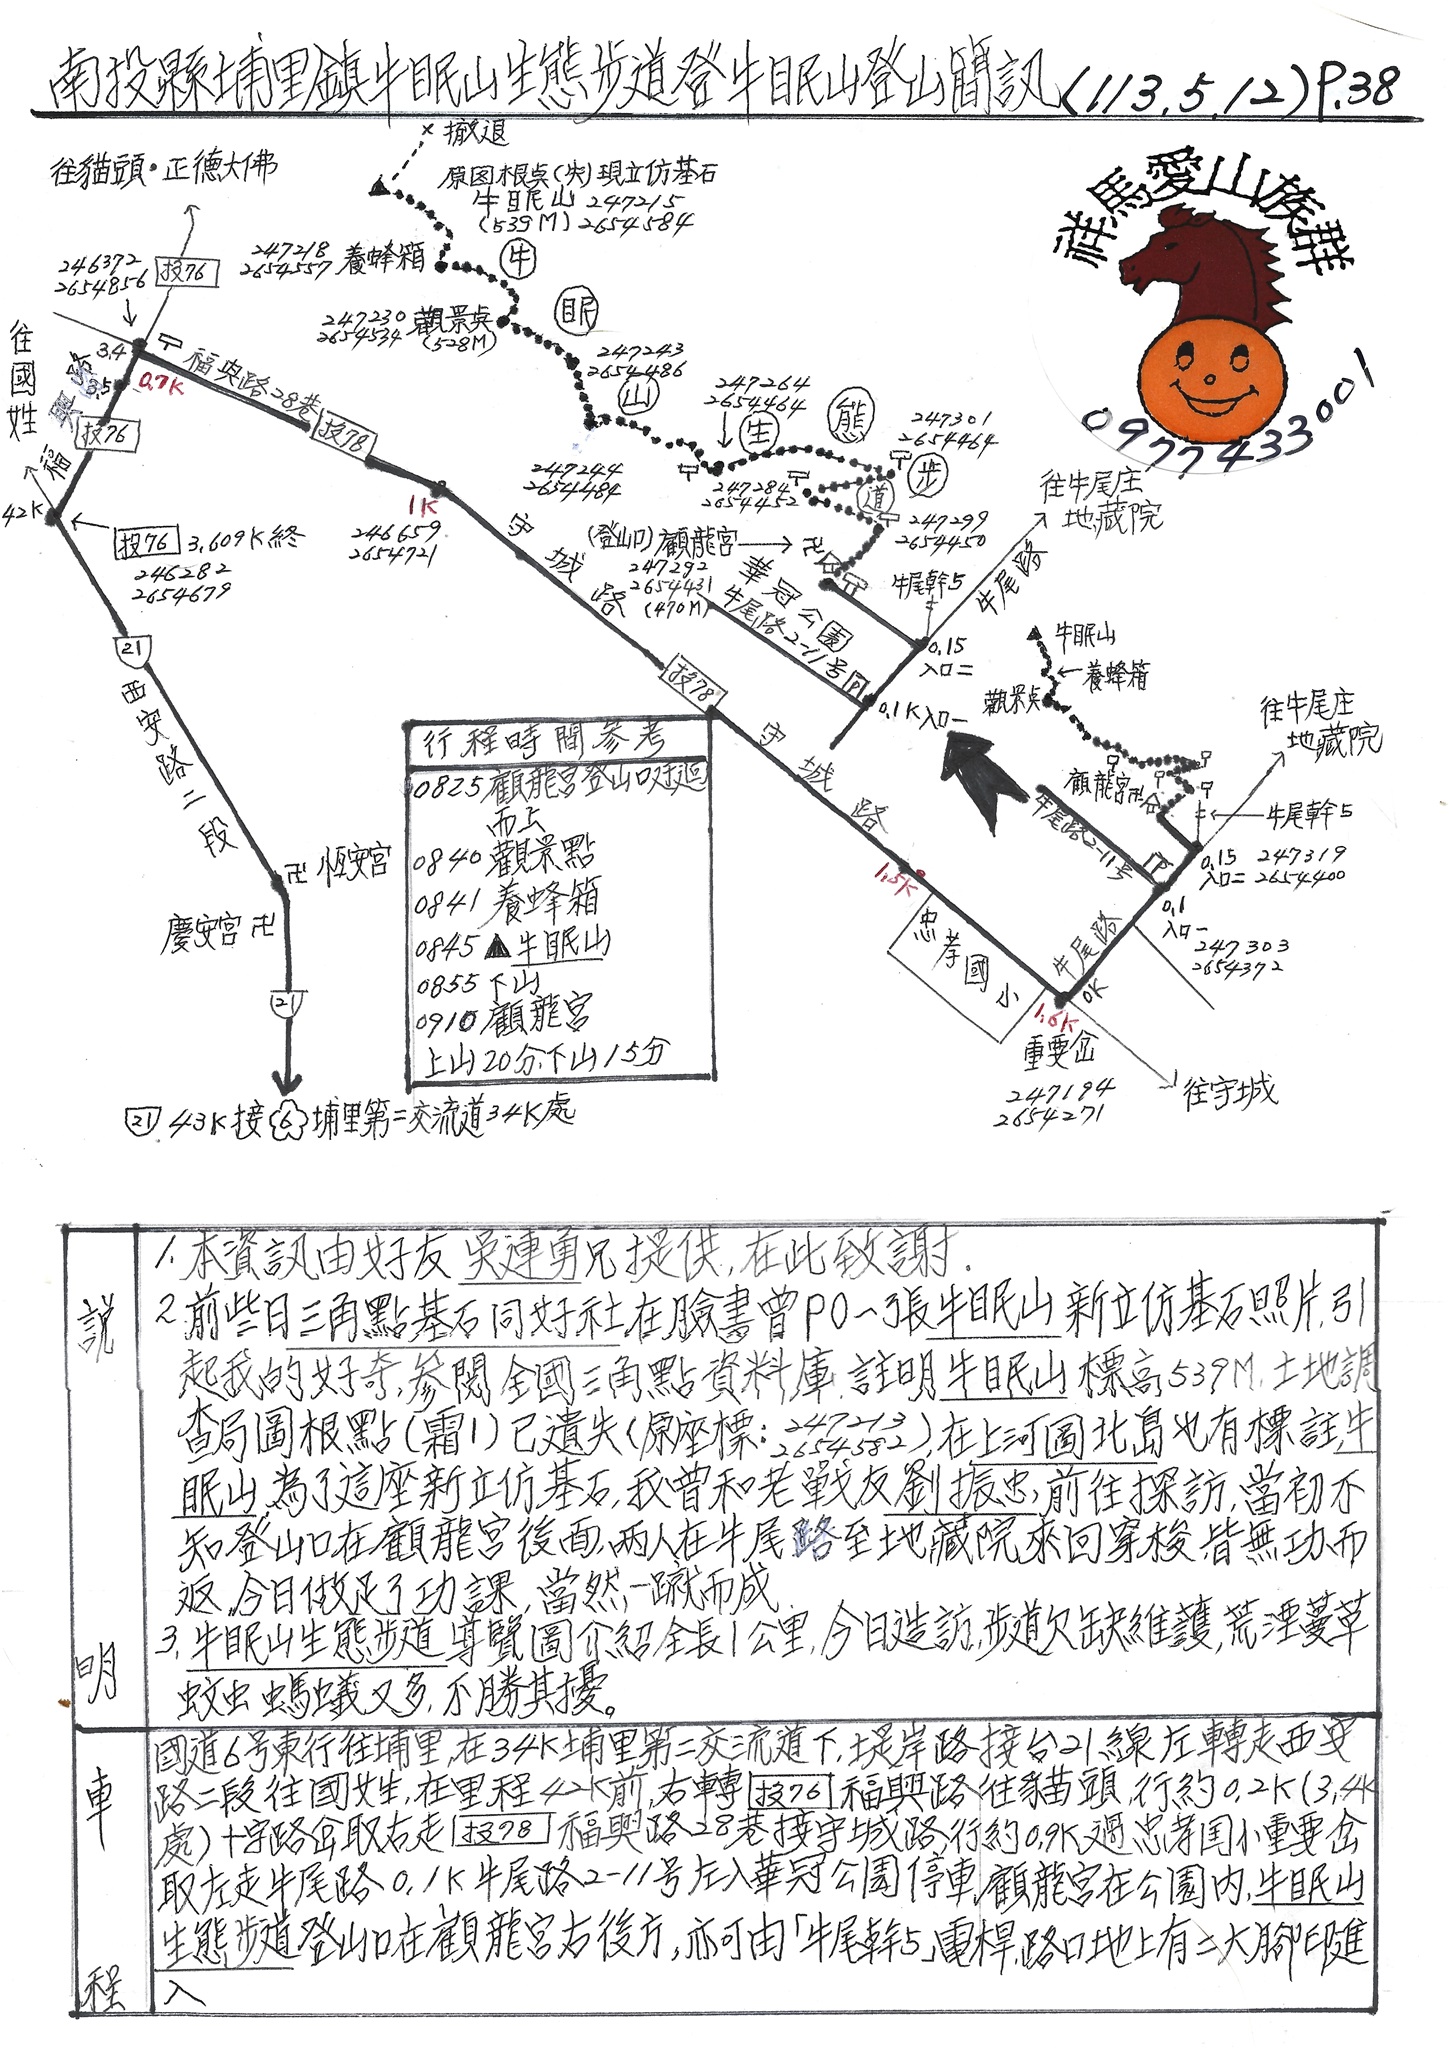 南投縣埔里鎮牛眠山生態步道登牛眠山登山簡訊(113.5.12)P.38
×撤退
往貓頭・正德大佛
原图根点(失)現立仿基石
牛眠山 247215
(539M) 2654584
祥馬愛山族群
0977433001
246372
2654856
投76
247218
2654557
養蜂箱
牛
眠
山
生
態
步
道
247230
2654534
觀景点
(528M)
往國姓
3.4
3.5
0.7K
福興路
福興路28巷
投76
投78
247243
2654486
247264
2654464
247301
2654464
247244
2654484
247284
2654452
247299
2654450
往牛尾庄
地藏院
42K
投76 3.609K終
246282
2654679
1K
246659
2654721
守城路
(登山口)顧龍宮
247292
2654431
(470M)
華冠公園
牛尾路2-11号
P
牛尾幹5
牛尾路
0.15
入口二
0.1K 入口一
21
西安路二段
投78
守城路
牛眠山
養蜂箱
觀景点
往牛尾庄
地藏院
顧龍宮
牛尾幹5
牛尾路2-11号
P
0.15
入口二
247319
2654400
0.1
入口一
247303
2654372
牛尾路
0K
行程時間參考
0825顧龍宮登山口迂迴
而上
0840觀景點
0841養蜂箱
0845▲牛眠山
0855下山
0910顧龍宮
上山20分.下山15分
卍 恆安宮
慶安宮 卍
21
1.5K
忠孝國小
1.6K
重要岔
247194
2654271
往守城
21 43K接 6 埔里第二交流道34K處
說明
1.本資訊由好友吳連勇兄提供,在此致謝.
2.前些日三角點基石同好社在臉書曾PO一張牛眠山新立仿基石照片,引
起我的好奇,參閱全國三角點資料庫,註明牛眠山標高539M,土地調
查局圖根點(霜1)已遺失(原座標:247213 2654582),在上河圖北島也有標註牛
眠山,為了這座新立仿基石,我曾和老戰友劉振忠,前往探訪,當初不
知登山口在顧龍宮後面,兩人在牛尾路至地藏院來回穿梭,皆無功而
返,今日做足了功課,當然一蹴而成.
3.牛眠山生態步道導覽圖介紹全長1公里,今日造訪,步道欠缺維護,荒湮蔓草
蚊虫螞蟻又多,不勝其擾。
車程
國道6号東行往埔里,在34K埔里第二交流道下,堤岸路接台21線左轉走西安
路二段往國姓,在里程42K前,右轉投76福興路往貓頭,行約0.2K(3.4K
處)十字路岔取右走投78福興路28巷接守城路,行約0.9K過忠孝国小重要岔
取左走牛尾路0.1K牛尾路2-11号左入華冠公園停車,顧龍宮在公園內,牛眠山
生態步道登山口在顧龍宮右後方,亦可由「牛尾幹5」電桿,路口地上有二大腳印進
入